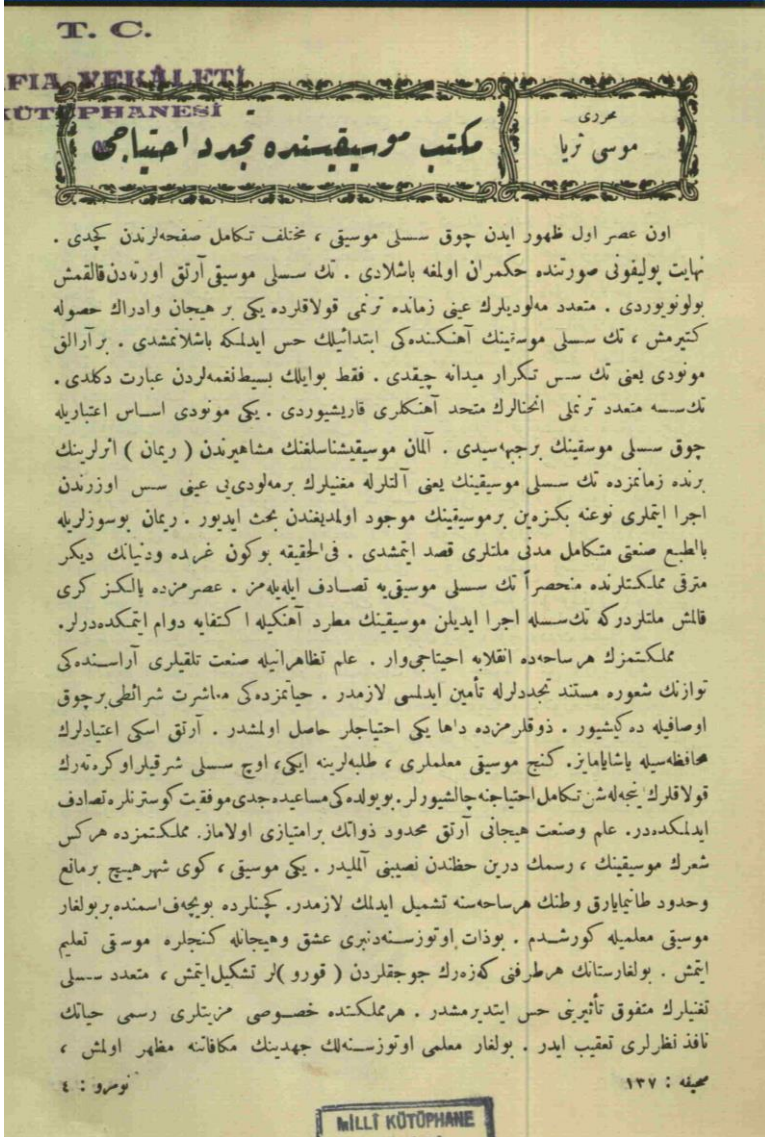 T. C.
FIA VEKÂLETİ
KÜTÜPHANESİ
محررى
موسى ثريا
مكتب موسيقيسنده تجدد احتياجى
اون عصر اول ظهور ايدن چوق سسلى موسيقى ، مختلف تكامل صفحه‌لرندن كچدى .
نهايت پوليفونى صورتنده حكمران اولمغه باشلادى . تك سسلى موسيقى آرتق اورته‌دن قالقمش
بولونويوردى . متعدد مه‌لوديلرك عينى زمانده ترنمى قولاقلرده يكى بر هيجان وادراك حصوله
كتيرمش ، تك سسلى موسيقينك آهنكنده‌كى ابتدائيلك حس ايدلمكه باشلانمشدى . بر آرالق
مونودى يعنى تك سس تكرار ميدانه چيقدى . فقط بوايلك بسيط نغمه‌لردن عبارت دكلدى .
تك‌سسه متعدد ترنملى انحنالرك متحد آهنكلرى قاريشيوردى . يكى مونودى اساس اعتباريله
چوق سسلى موسيقينك برجبهه‌سيدى . آلمان موسيقيشناسلغنك مشاهيرندن ( ريمان ) اثرلرينك
برنده زمانمزده تك سسلى موسيقينك يعنى آلتلرله مغنيلرك برمه‌لودى‌يى عينى سس اوزرندن
اجرا ايتملرى نوعنه بكزه‌ين برموسيقينك موجود اولمديغندن بحث ايديور . ريمان بوسوزلريله
بالطبع صنعتى متكامل مدنى ملتلرى قصد ايتمشدى . فى‌الحقيقه بوكون غربده ودنيانك ديكر
مترقى مملكتلرنده منحصراً تك سسلى موسيقى‌يه تصادف ايله‌يه‌مز . عصرمزده يالكز كرى
قالمش ملتلردركه تك‌سسله اجرا ايديلن موسيقينك مطرد آهنكيله اكتفايه دوام ايتمكده‌درلر.
مملكتمزك هر ساحه‌ده انقلابه احتياجى‌وار . علم تظاهراتيله صنعت تلقيلرى آراسنده‌كى
توازنك شعوره مستند تجددلرله تأمين ايدلمسى لازمدر . حياتمزده‌كى معاشرت شرائطى برچوق
اوصافيله ده‌كيشيور . ذوقلرمزده داها يكى احتياجلر حاصل اولمشدر . آرتق اسكى اعتيادلرك
محافظه‌سيله ياشايامايز. كنج موسيقى معلملرى ، طلبه‌لرينه ايكى، اوچ سسلى شرقيلر اوكره‌ته‌رك
قولاقلرك اينجه‌له‌شن تكامل احتياجنه چاليشيورلر. بويولده‌كى مساعيده جدى موفقيت كوسترنلره تصادف
ايدلمكده‌در. علم وصنعت هيجانى آرتق محدود ذواتك برامتيازى اولاماز. مملكتمزده هركس
شعرك موسيقينك ، رسمك درين حظندن نصيبنى آلمليدر . يكى موسيقى ، كوى شهر هيچ برمانع
وحدود طانيمايارق وطنك هرساحه‌سنه تشميل ايدلمك لازمدر. كچنلرده بويجه‌ف اسمنده بربولغار
موسيقى معلميله كورشدم . بوذات اوتوزسنه‌دنبرى عشق وهيجانله كنجلره موسيقى تعليم
ايتمش . بولغارستانك هرطرفنى كه‌زه‌رك چوجقلردن ( قورو )لر تشكيل ايتمش ، متعدد سسلى
تغنيلرك متفوق تأثيرينى حس ايتديرمشدر . هرمملكتده خصوصى مزيتلرى رسمى حياتك
نافذ نظرلرى تعقيب ايدر . بولغار معلمى اوتوزسنه‌لك جهدينك مكافاتنه مظهر اولمش ،
صحيفه : ١٣٧
نومرو : ٤
MİLLÎ KÜTÜPHANE